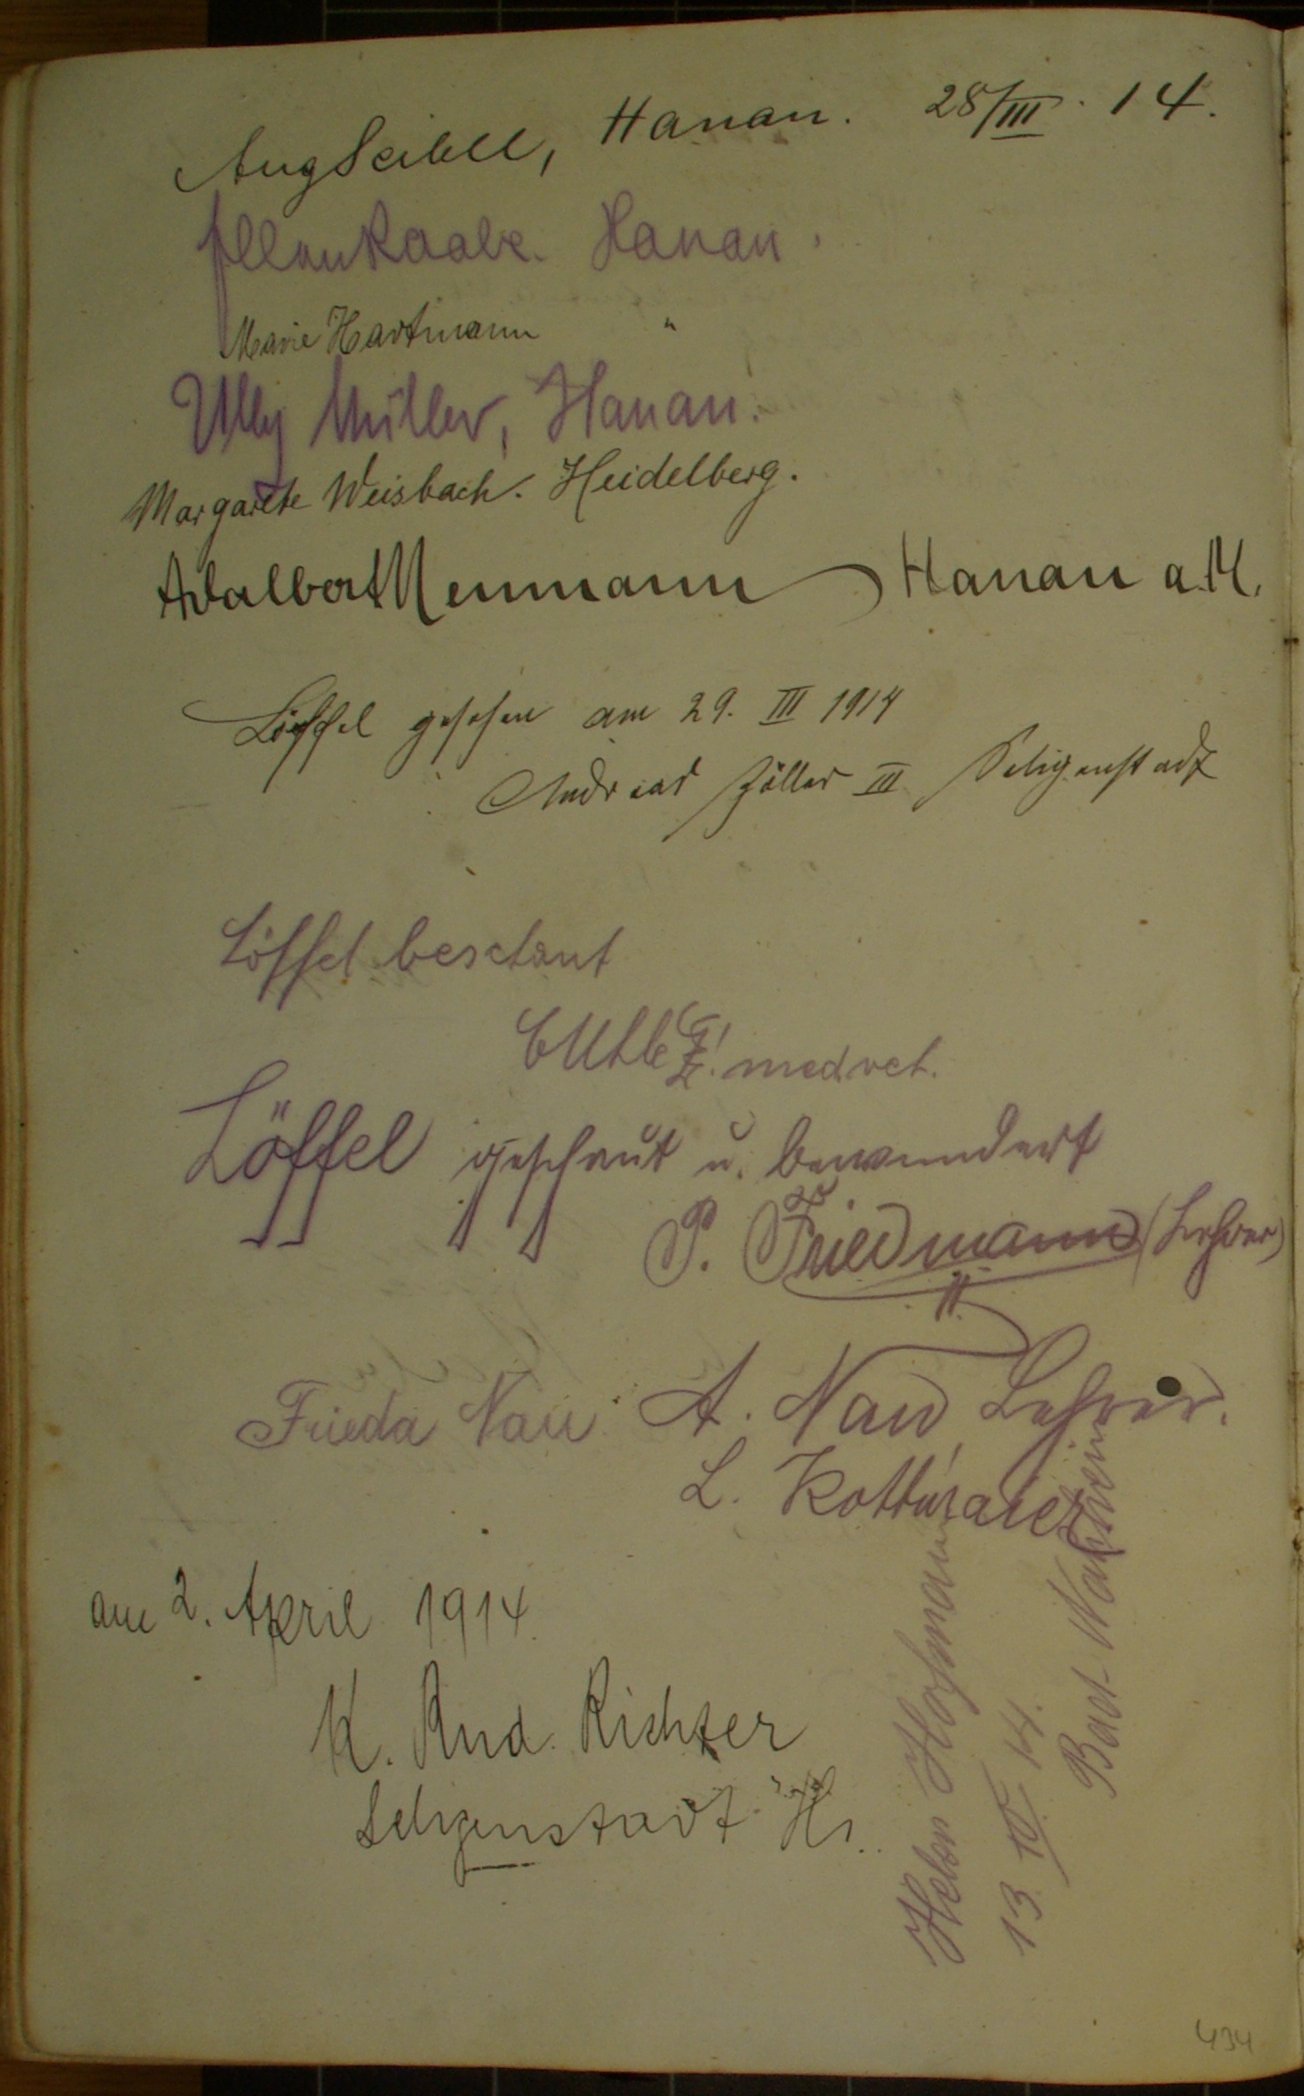 Aug Seibell, Hanau. 28/III. 14.
Ellen Raabe. Hanau.
Marie Hartmann "
Ully Müller, Hanau.
Margarete Weisbach. Heidelberg.
Adalbert Neumann Hanau a.M.
Löffel gesehen am 29. III 1914
Andreas Zöller III Seligenstadt
Löffel beschaut
med vet.
Löffel geschaut u. bewundert
P. Friedmann (Lehrer)
Frieda Nau A. Nau Lehrer.
L.
am 2. April 1914
K. Rud. Richter
Seligenstadt Hs.
Helen Hofmann
13. IV. 14.
Bad-Nauheim
434